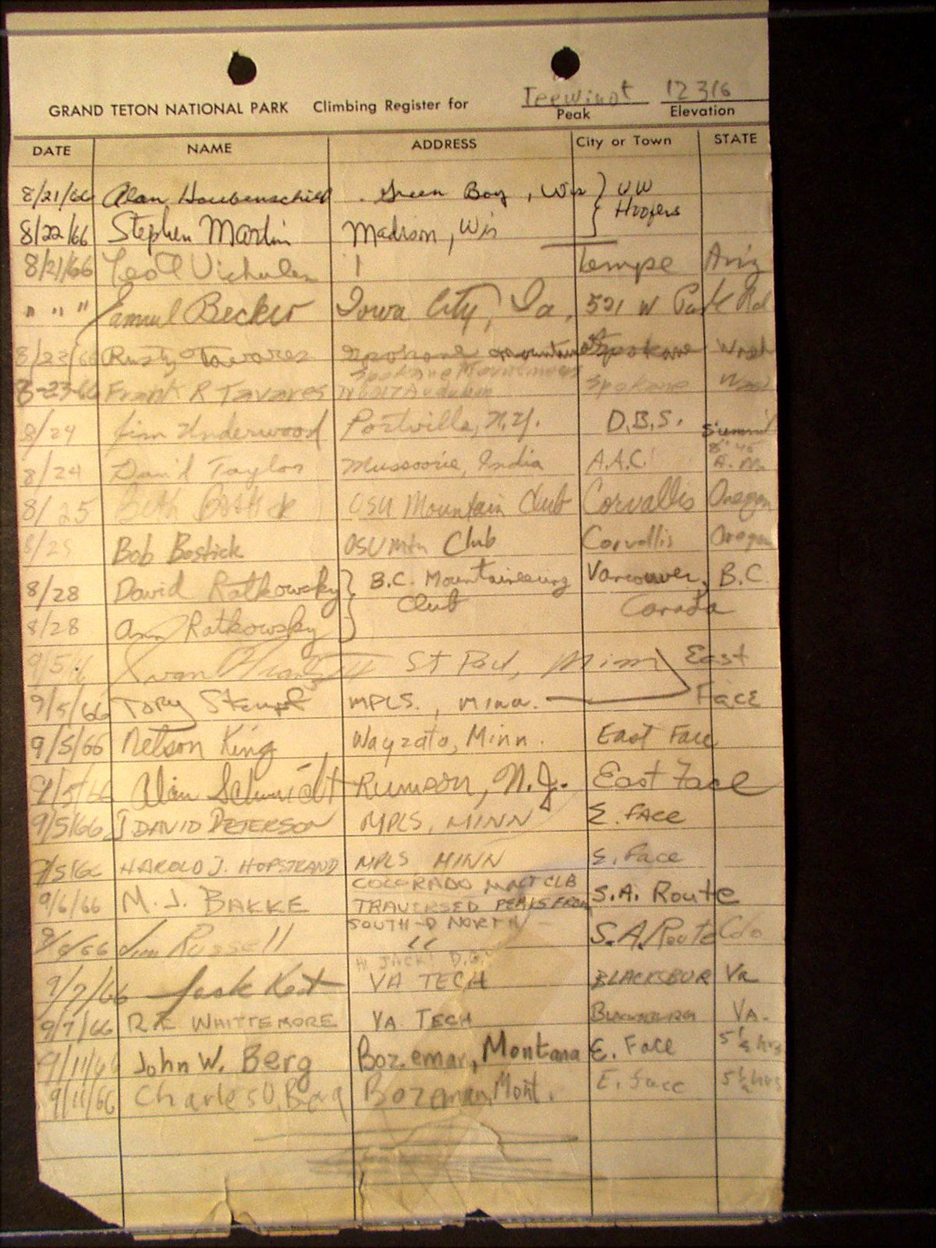 GRAND TETON NATIONAL PARK Climbing Register for Teewinot 12316
Peak Elevation
DATE NAME ADDRESS City or Town STATE
8/21/66 Alan Green Bay, Wis } UW
Hoofers
8/22/66 Stephen Martin Madison, Wis
8/21/66 Tempe Ariz
" " " Samuel Becker Iowa City, Ia, 521 W Park Rd
8/22/66 Rusty Tavares Spokane Mountaineers Spokane Wash
Spokane Mountaineers
8-23-66 Frank R Tavares Audubon Spokane Wash
8/24 Jim Underwood Portville, N.Y. D.B.S. Summit
8/24 David Taylor Mussoorie, India A.A.C. 8:45 A.M.
8/25 Beth Bostick OSU Mountain Club Corvallis Oregon
8/25 Bob Bostick OSU Mtn Club Corvallis Oregon
8/28 David Ratkowsky } B.C. Mountaineering Vancouver, B.C.
Club Canada
8/28 Ann Ratkowsky
9/5/66 St Paul, Minn East
9/5/66 Tory Stempf MPLS., Minn. Face
9/5/66 Nelson King, Wayzata, Minn. East Face
9/5/66 Alan Schmidt Rumson, N.J. East Face
9/5/66 J DAVID PETERSON MPLS, MINN E. FACE
9/5/66 HAROLD J. HOPSTRAND MPLS MINN E. Face
COLORADO MNT CLB
9/6/66 M. J. BAKKE TRAVERSED PEAKS FROM S.A. Route
SOUTH → NORTH
9/6/66 Jim Russell " S.A. Route Colo
HI JACK! D.G.
9/7/66 Jack Kest VA TECH BLACKSBUR Va
9/7/66 R.E. WHITTEMORE VA. TECH BLACKSBURG VA.
9/11/66 John W. Berg Bozeman, Montana E. Face 5½ hrs
9/11/66 Charles O. Berg Bozeman, Mont. E. face 5½ hrs